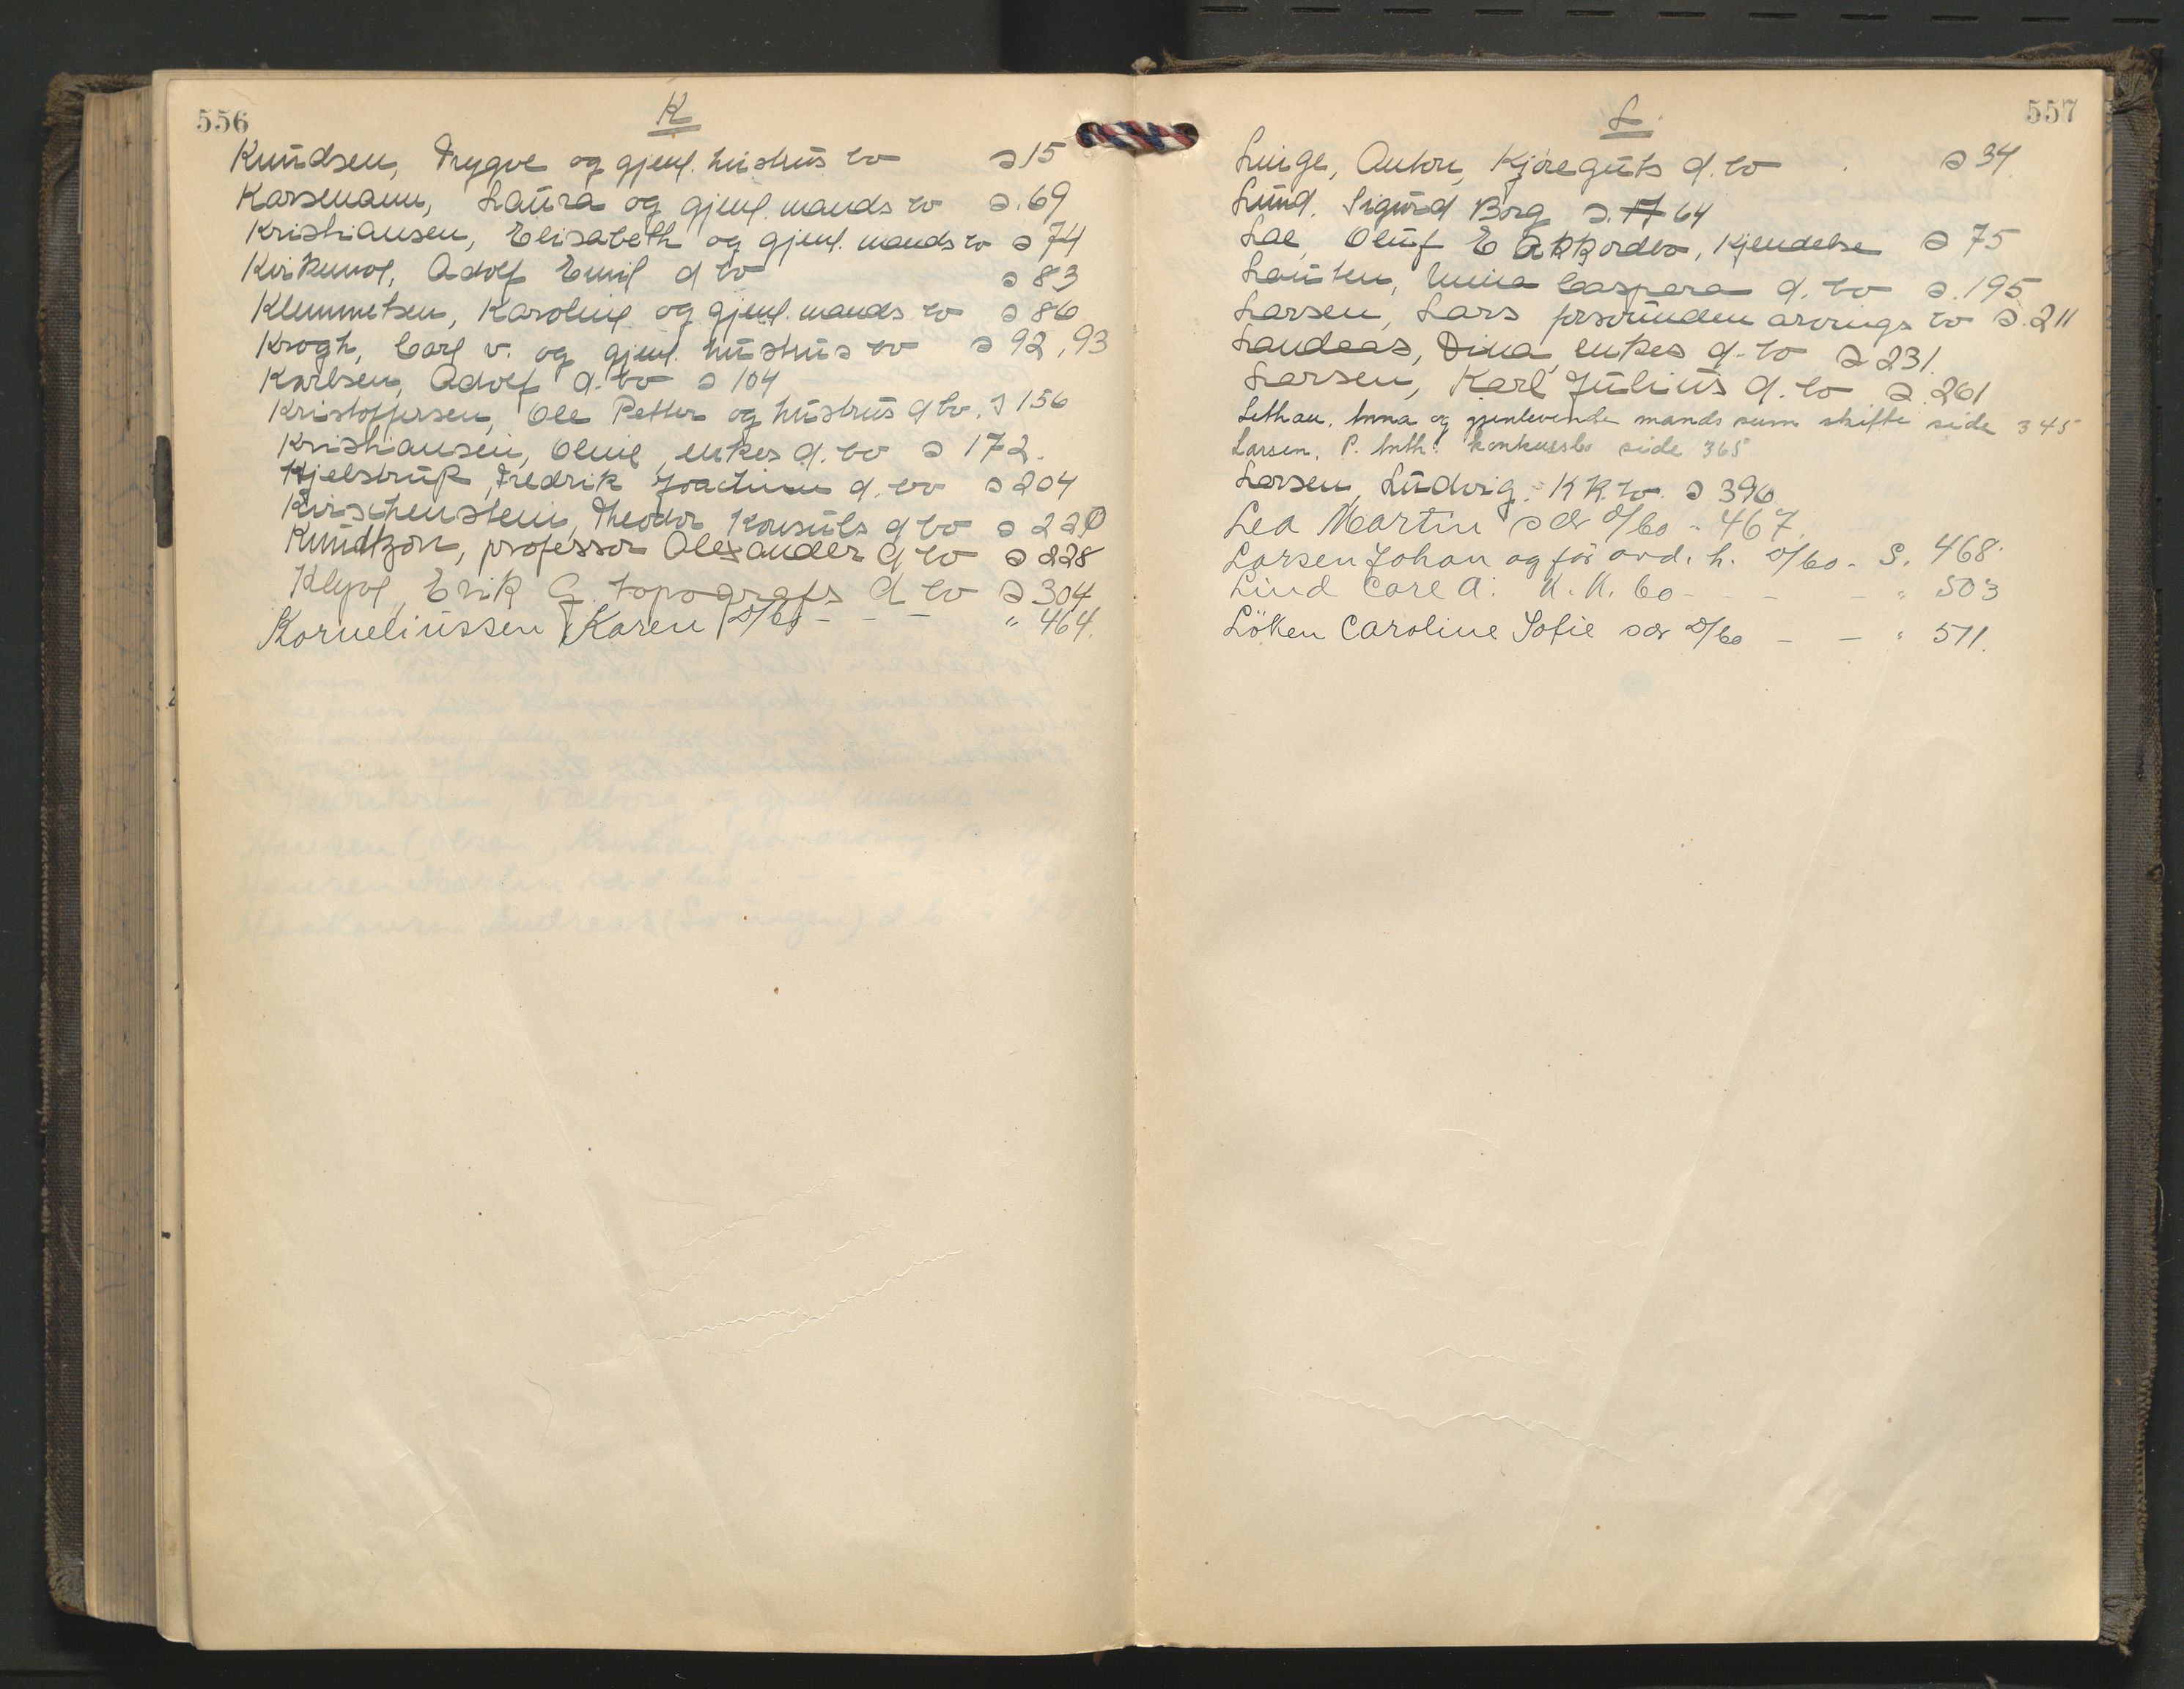 556
K
Knudsen, Trygve og gjenl. hustrus bo s 15
Karsemann, Laura og gjenl. mands bo s. 69
Kristiansen, Elisabeth og gjenl. mands bo s 74
Adolf Emil d bo s 83
Klemmetsen, Karoline og gjenl. mands bo s 86
Krogh, Carl v. og gjenl. hustrus bo s 92, 93
Karlsen, Adolf d. bo s 104
Kristoffersen, Ole Petter og hustrus d bo. s 156
Kristiansen, Oline, enkes d. bo s 172.
Kjelstrup, Fredrik Joachim d. bo s 204
Kirschenstein, Theodor Konsuls d bo s 220
Knudtzon, professor Alexander d bo s 228
Erik G. topografs d bo s 304
Korneliussen Karen d/bo - - - " 464.
557
L.
Luige, Anton, Kjøreguts d. bo s 34.
Lund. Sigurd Borg s. 17 64
Lae, Oluf E Akkordbo, Kjendelse s 75
Caspara d. bo s. 195
Larsen, Lars forsvunden arvings bo s. 211
Landaas, Dina, enkes d. bo s 231.
Larsen, Karl Julius d. bo s. 261
Lethau, Anna og gjenlevende mands sum skifte side 345
Larsen, P. Anth. konkursbo side 365
Larsen, Ludvig. KK bo. s 396
Lea Martin sær d/bo - 467.
Larsen Johan og før avd. h. d/bo - S. 468.
Lind Carl A. K. K. bo - - - - " 503
Löken Caroline Sofie sær d/bo - - " 511.